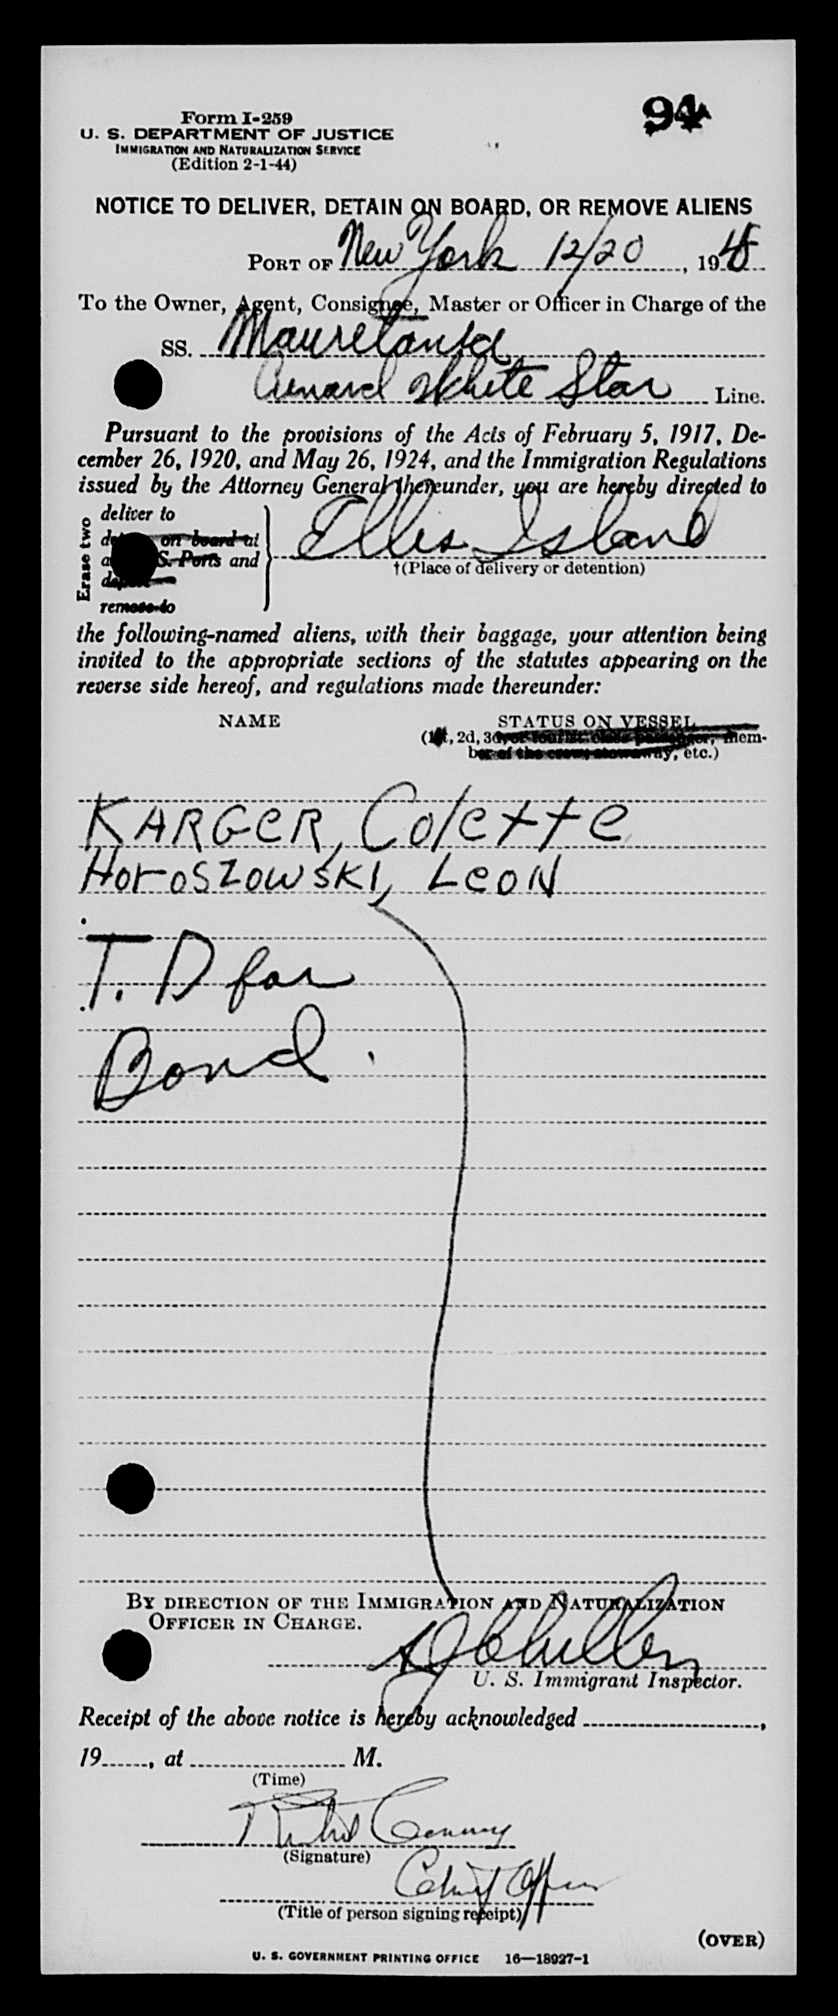 94
Form I-259
U. S. DEPARTMENT OF JUSTICE
IMMIGRATION AND NATURALIZATION SERVICE
(Edition 2-1-44)
NOTICE TO DELIVER, DETAIN ON BOARD, OR REMOVE ALIENS
PORT OF New York 12/20, 1948
To the Owner, Agent, Consignee, Master or Officer in Charge of the
SS. Mauretania
Cunard White Star Line.
Pursuant to the provisions of the Acts of February 5, 1917, De-
cember 26, 1920, and May 26, 1924, and the Immigration Regulations
issued by the Attorney General thereunder, you are hereby directed to
Erase two
deliver to
on board at
S. Ports and
remove to
Ellis Island
†(Place of delivery or detention)
the following-named aliens, with their baggage, your attention being
invited to the appropriate sections of the statutes appearing on the
reverse side hereof, and regulations made thereunder:
NAME STATUS ON VESSEL
(1st, 2d, 3d, or tourist class passenger, mem-
ber of the crew, stowaway, etc.)
KARGER, Colette
HoroSZowSKI, LeoN
T. D for
Bond.
BY DIRECTION OF THE IMMIGRATION AND NATURALIZATION
OFFICER IN CHARGE.
U. S. Immigrant Inspector.
Receipt of the above notice is hereby acknowledged
19, at M.
(Time)
(Signature)
Chief Officer
(Title of person signing receipt)
(OVER)
U. S. GOVERNMENT PRINTING OFFICE 16—18927-1